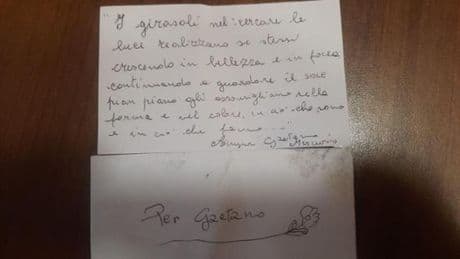 "I girasoli nel cercare la
luce realizzano se stessi
crescendo in bellezza e in forza
continuando a guardare il sole
pian piano gli assomigliano nella
forma e nel colore, in ciò che sono
e in ciò che fanno..."
Gaetano
Per Gaetano